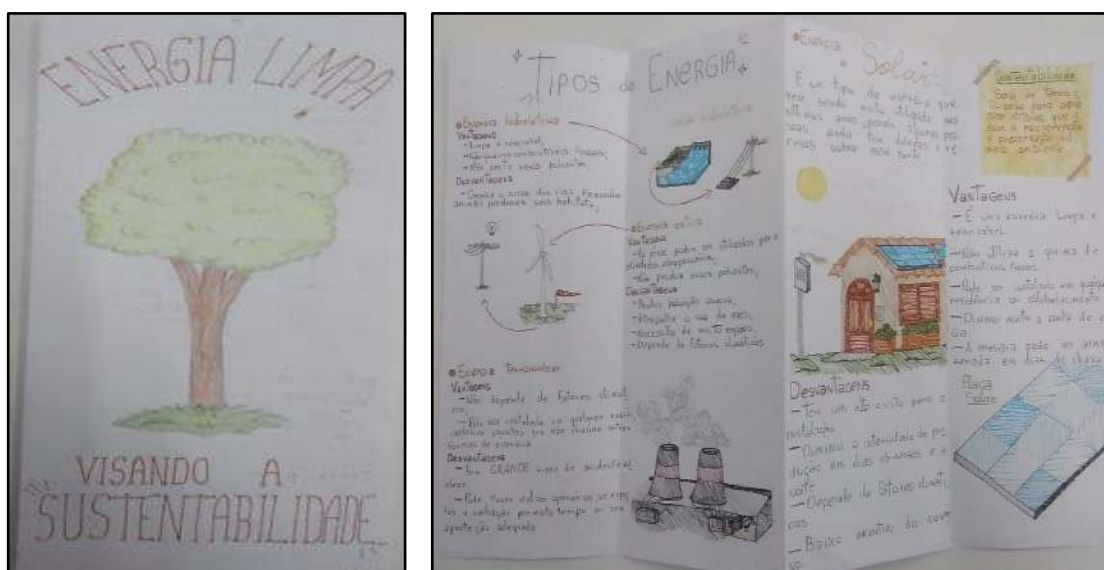 ENERGIA LIMPA
VISANDO A
SUSTENTABILIDADE
TIPOS de ENERGIA
Energia hidrelétrica
Vantagens
- Limpa e renovável;
- Não queima combustíveis fósseis;
- Não emite gases poluentes.
Desvantagens
- Desvia o curso dos rios, fazendo
animais perderem seus habitats;
usina hidrelétrica
Energia eólica
Vantagens
- As áreas podem ser utilizadas para
- Não produz gases poluentes;
Desvantagens
- Produz poluição sonora;
- Atrapalha a voo de aves;
- Necessita de muito espaço;
- Depende de fatores climáticos.
Energia
Vantagens
- Não depende de fatores climáti
cos;
- Pode ser instalada em qualquer
formas de energia
Desvantagens
- Tem GRANDE risco de acidentes
Energia Solar
É um tipo de energia que
vem sendo muito utilizada nos
últimos anos, porém, algumas pes
soas ainda tem dúvidas e re
ceios sobre essa fonte
Sustentabilidade
meio ambiente.
Vantagens
- É uma energia limpa e
renovável.
- Não utiliza a queima de
combustíveis fósseis
- Pode ser instalada em qualquer
residência ou estabelecimento
- Diminui muito a conta de
- A energia pode ser
em dias de chuva
Placa
Solar
Desvantagens
- Tem um alto custo para a
instalação
- Diminui a intensidade de pro
dução em dias chuvosos e a
noite
- Depende de fatores climáti
cos
- Baixo